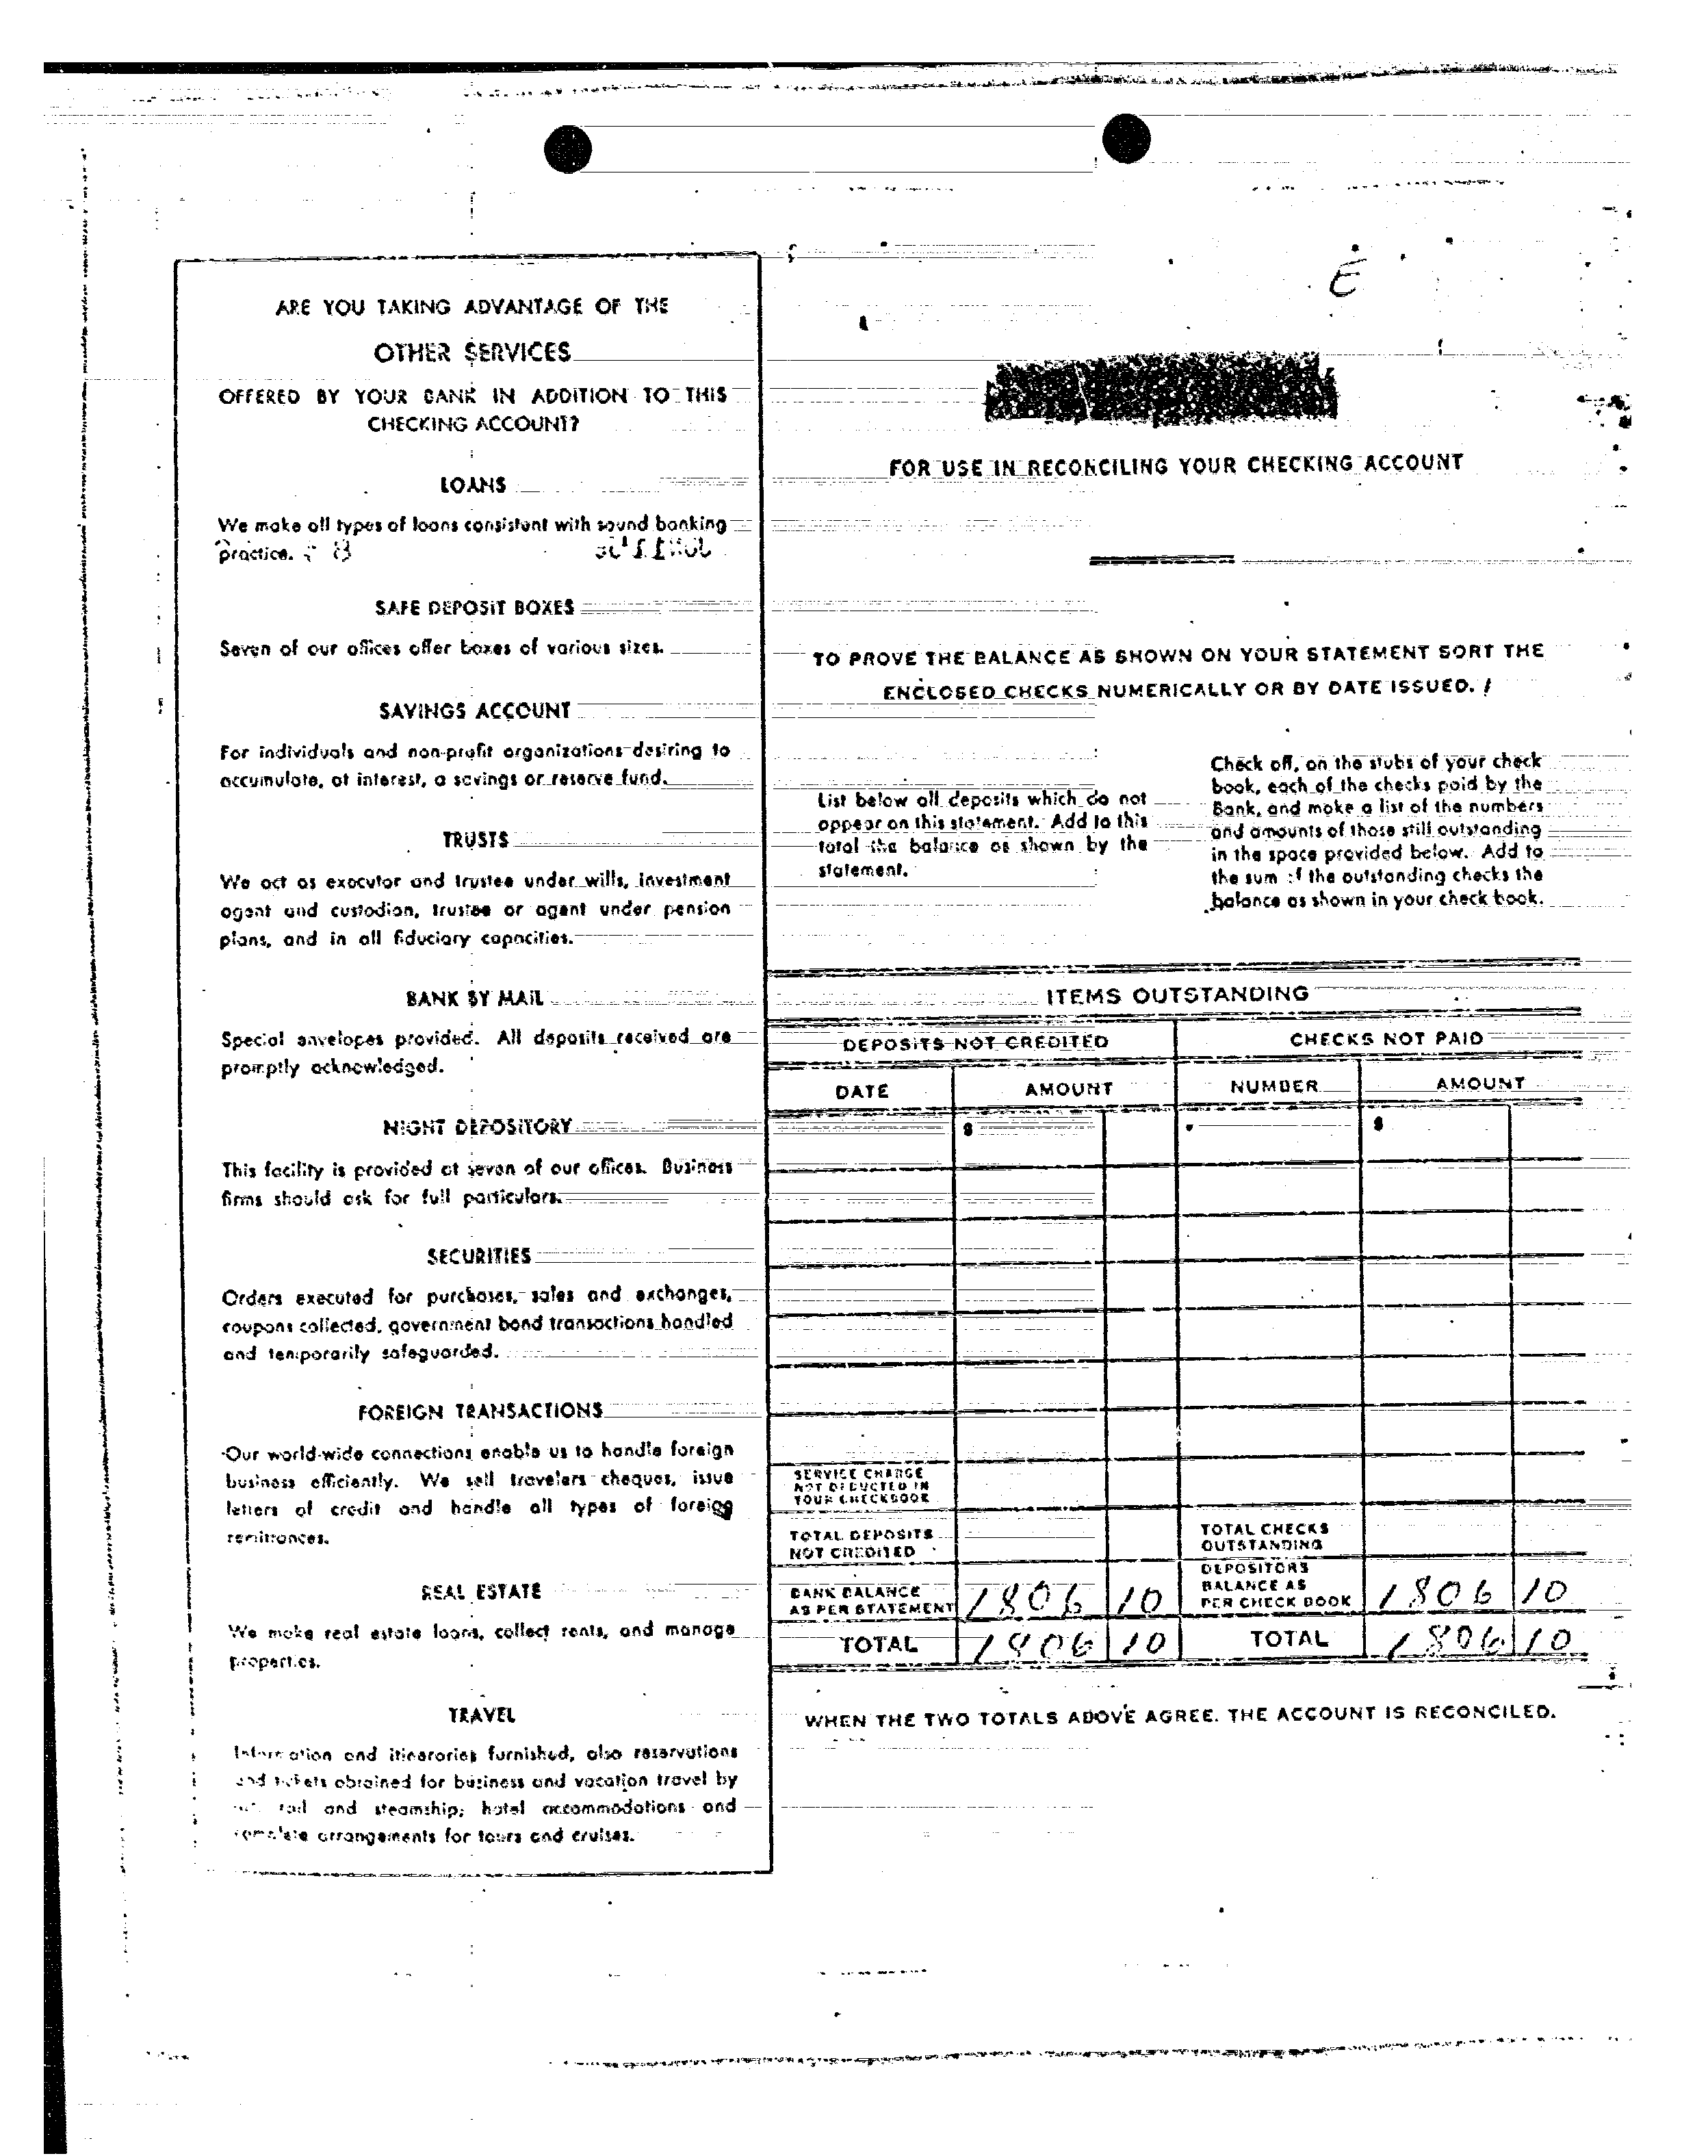 E
ARE YOU TAKING ADVANTAGE OF THE
OTHER SERVICES
OFFERED BY YOUR BANK IN ADDITION TO THIS
CHECKING ACCOUNT?
LOANS
We make all types of loans consistent with sound banking
practice.
SAFE DEPOSIT BOXES
Seven of our offices offer boxes of various sizes.
SAVINGS ACCOUNT
For individuals and non-profit organizations desiring to
accumulate, at interest, a savings or reserve fund.
TRUSTS
We act as executor and trustee under wills, investment
agent and custodian, trustee or agent under pension
plans, and in all fiduciary capacities.
BANK BY MAIL
Special envelopes provided. All deposits received are
promptly acknowledged.
NIGHT DEPOSITORY
This facility is provided at seven of our offices. Business
firms should ask for full particulars.
SECURITIES
Orders executed for purchases, sales and exchanges,
coupons collected, government bond transactions handled
and temporarily safeguarded.
FOREIGN TRANSACTIONS
Our world-wide connections enable us to handle foreign
business efficiently. We sell travelers cheques, issue
letters of credit and handle all types of foreign
remittances.
REAL ESTATE
We make real estate loans, collect rents, and manage
properties.
TRAVEL
Information and itineraries furnished, also reservations
and tickets obtained for business and vacation travel by
rail and steamship; hotel accommodations and
complete arrangements for tours and cruises.
FOR USE IN RECONCILING YOUR CHECKING ACCOUNT
TO PROVE THE BALANCE AS SHOWN ON YOUR STATEMENT SORT THE
ENCLOSED CHECKS NUMERICALLY OR BY DATE ISSUED.
List below all deposits which do not
appear on this statement. Add to this
total the balance as shown by the
statement.
Check off, on the stubs of your check
book, each of the checks paid by the
Bank, and make a list of the numbers
and amounts of those still outstanding
in the space provided below. Add to
the sum of the outstanding checks the
balance as shown in your check book.
ITEMS OUTSTANDING
DEPOSITS NOT CREDITED CHECKS NOT PAID
DATE AMOUNT NUMBER AMOUNT
$ $
SERVICE CHARGE
NOT DEDUCTED IN
YOUR CHECKBOOK
TOTAL DEPOSITS
NOT CREDITED
TOTAL CHECKS
OUTSTANDING
BANK BALANCE
AS PER STATEMENT 1806 10
DEPOSITORS
BALANCE AS
PER CHECK BOOK 1806 10
TOTAL 1806 10 TOTAL 1806 10
WHEN THE TWO TOTALS ABOVE AGREE. THE ACCOUNT IS RECONCILED.